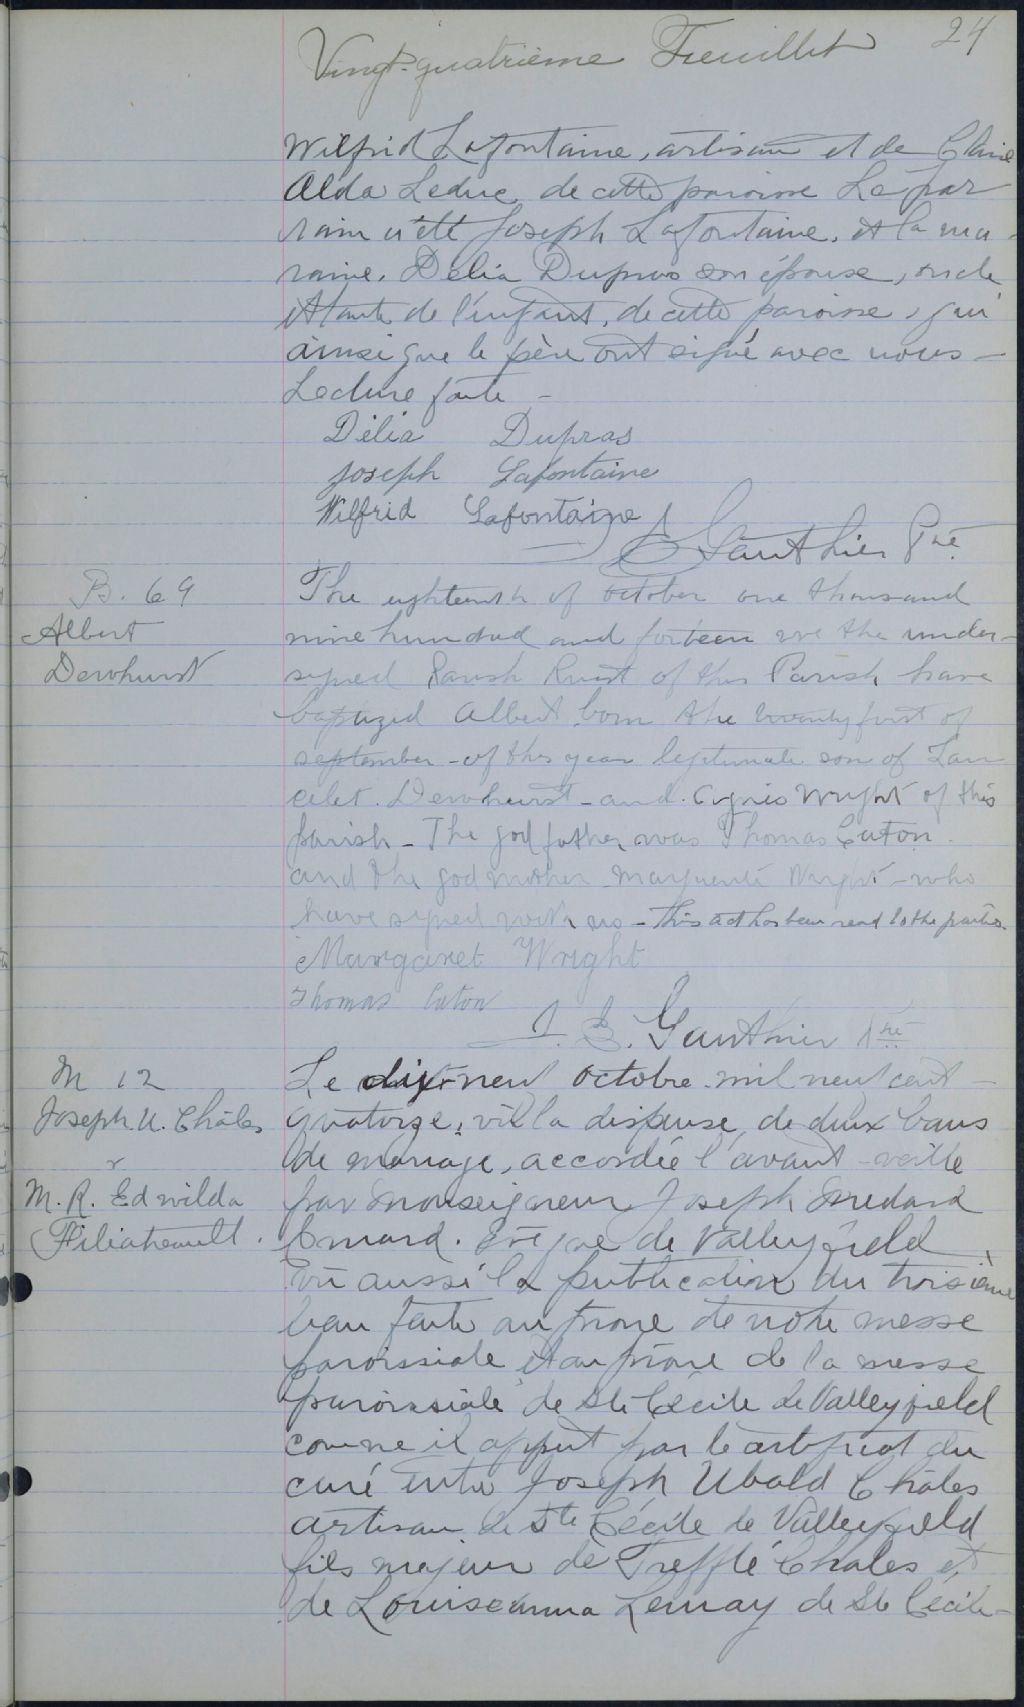 24
Vingt-quatrième Feuillet
Wilfrid Lafontaine, artisan et de Claire
Alda Leduc de cette paroisse Le par
rain a été Joseph Lafontaine, et la ma
raine, Délia Dupras son épouse, oncle
et tante de l'enfant, de cette paroisse, qui
ainsi que le père ont signé avec nous —
Lecture faite —
Délia Dupras
Joseph Lafontaine
Wilfrid Lafontaine
Gauthier Ptre
B. 69
Albert
Dewhurst
The eighteenth of october one thousand
nine hundred and forteen we the under-
signed Parish Priest of this Parish have
baptized Albert born the twenty first of
september - of this year legitimate son of Lan
celet. Dewhurst - and. Agnes Wright of this
parish - The god father was Thomas Eaton.
and the god mother Marguerite Wright - who
have signed with us - This act has been read to the parties.
Margaret Wright
Thomas Eaton
J. E. Gauthier Ptre
M 12
Joseph. U. Châles
&
M. R. Edwilda
Filiatreault.
Le dix-neuf octobre mil neuf cent —
quatorze, vu la dispense de deux bans
de mariage, accordée l'avant-veille
par Monseigneur Joseph Médard
Emard. Evêque de Valleyfield,
Vu aussi la publication du troisième
ban faite au prône de notre messe
paroissiale et au prône de la messe
paroissiale de Ste Cécile de Valleyfield
comme il appert par le certificat du
curé entre Joseph Ubald Châles
artisan de Ste Cécile de Valleyfield
fils majeur de Trefflé Chales et
de Louiseanna Lemay de Ste Cécile -